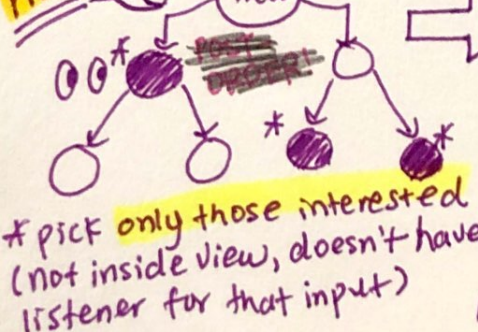 POST
ORDER!
*
*
*
* pick only those interested
(not inside view, doesn't have
listener for that input)